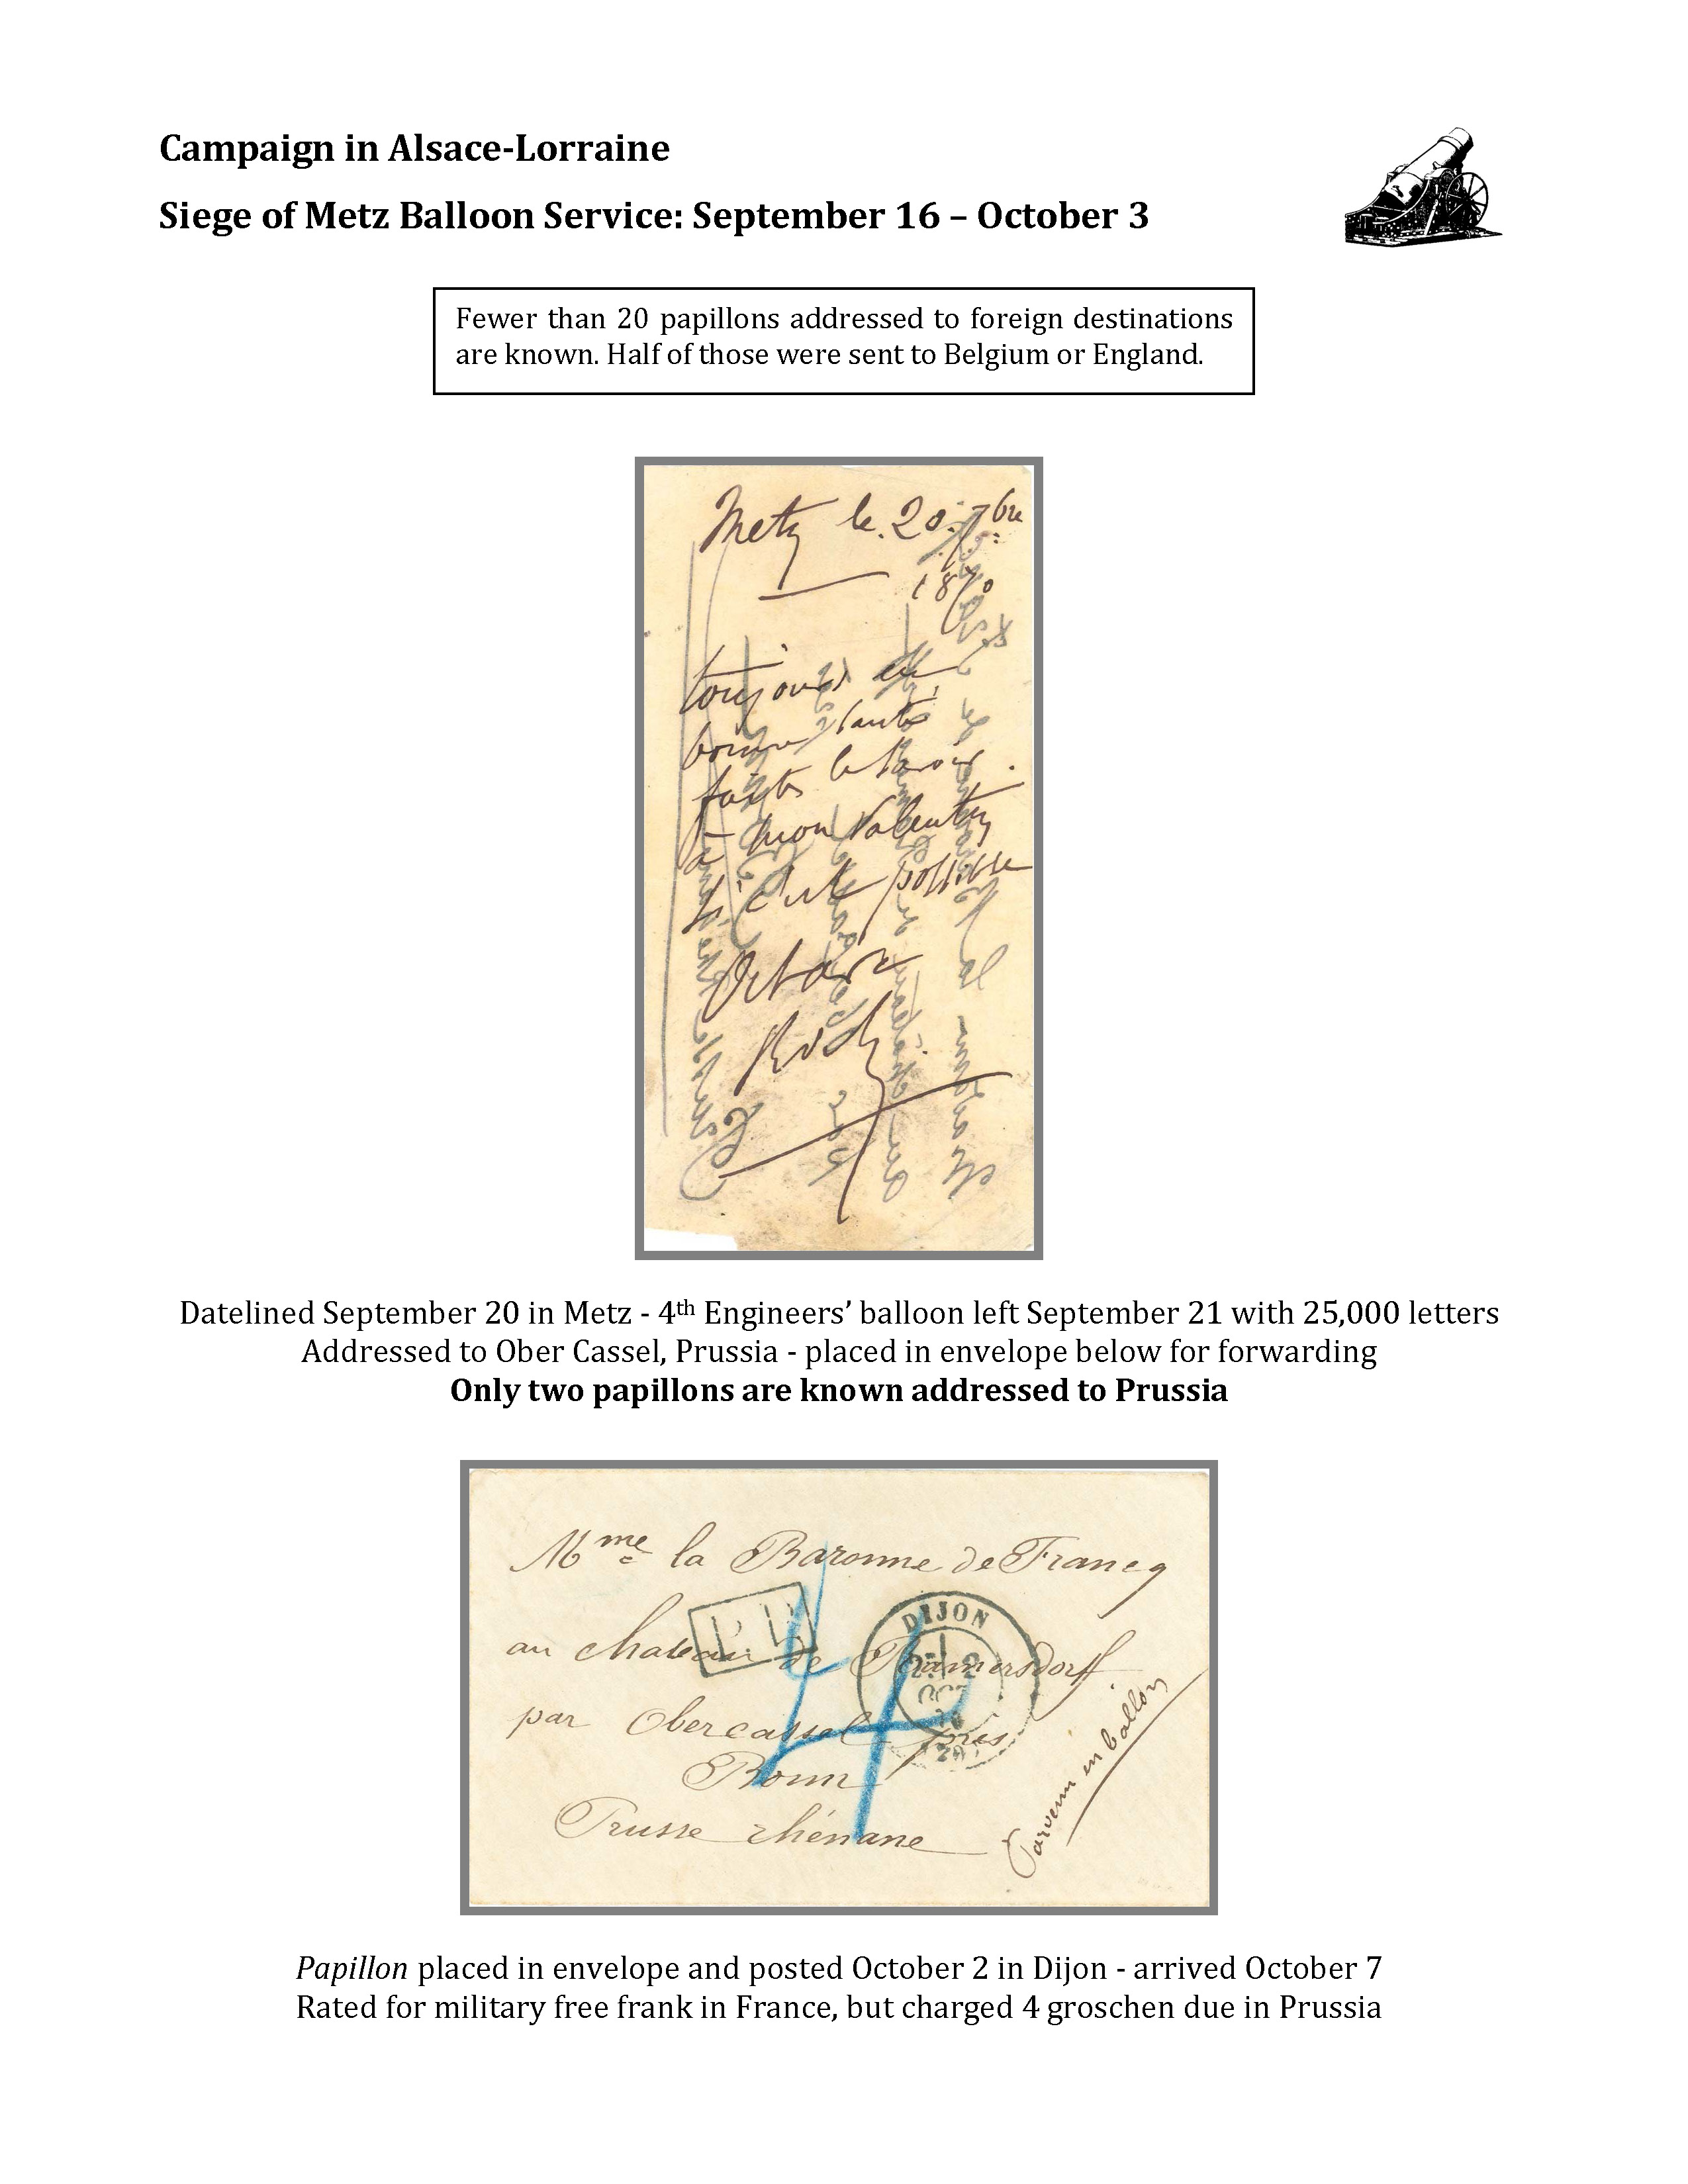 Campaign in Alsace-Lorraine
Siege of Metz Balloon Service: September 16 – October 3
Fewer than 20 papillons addressed to foreign destinations
are known. Half of those were sent to Belgium or England.
Metz le. 20. 7bre
1870
toujours en
bonne santé
faites le savoir.
à mon Valentin
si c'est possible
Datelined September 20 in Metz - 4th Engineers’ balloon left September 21 with 25,000 letters
Addressed to Ober Cassel, Prussia - placed in envelope below for forwarding
Only two papillons are known addressed to Prussia
Mme la Baronne de Francq
au chateau de Ramersdorff
par Obercassel près
Bonn
Prusse rhénane
Parvenu en ballon
P.P.
DIJON
2
OCT
70
4
Papillon placed in envelope and posted October 2 in Dijon - arrived October 7
Rated for military free frank in France, but charged 4 groschen due in Prussia